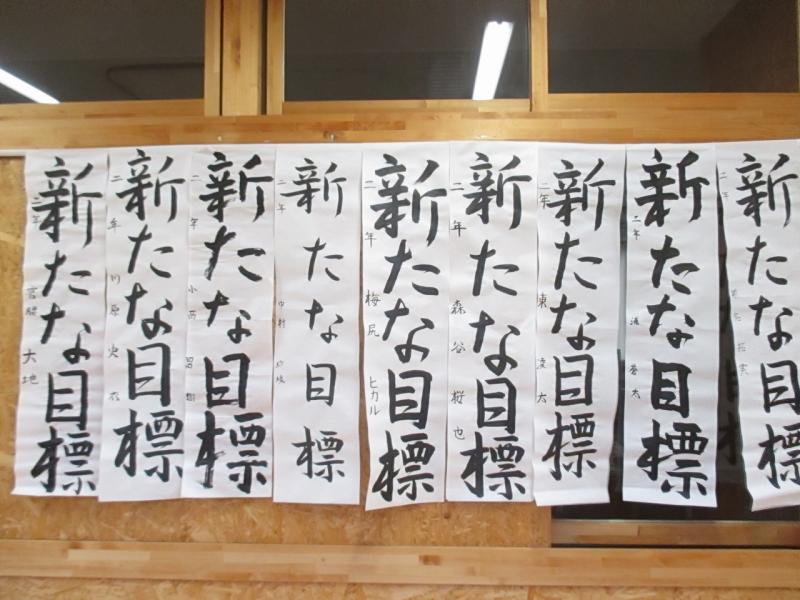 新たな目標
二年
大地
新たな目標
二年 川原
新たな目標
二年 小西
新たな目標
二年 中村
新たな目標
二年 梅尻 ヒカル
新たな目標
二年 森谷 桜也
新たな目標
二年 東 凌太
新たな目標
二年 蒼太
新たな目標
二年